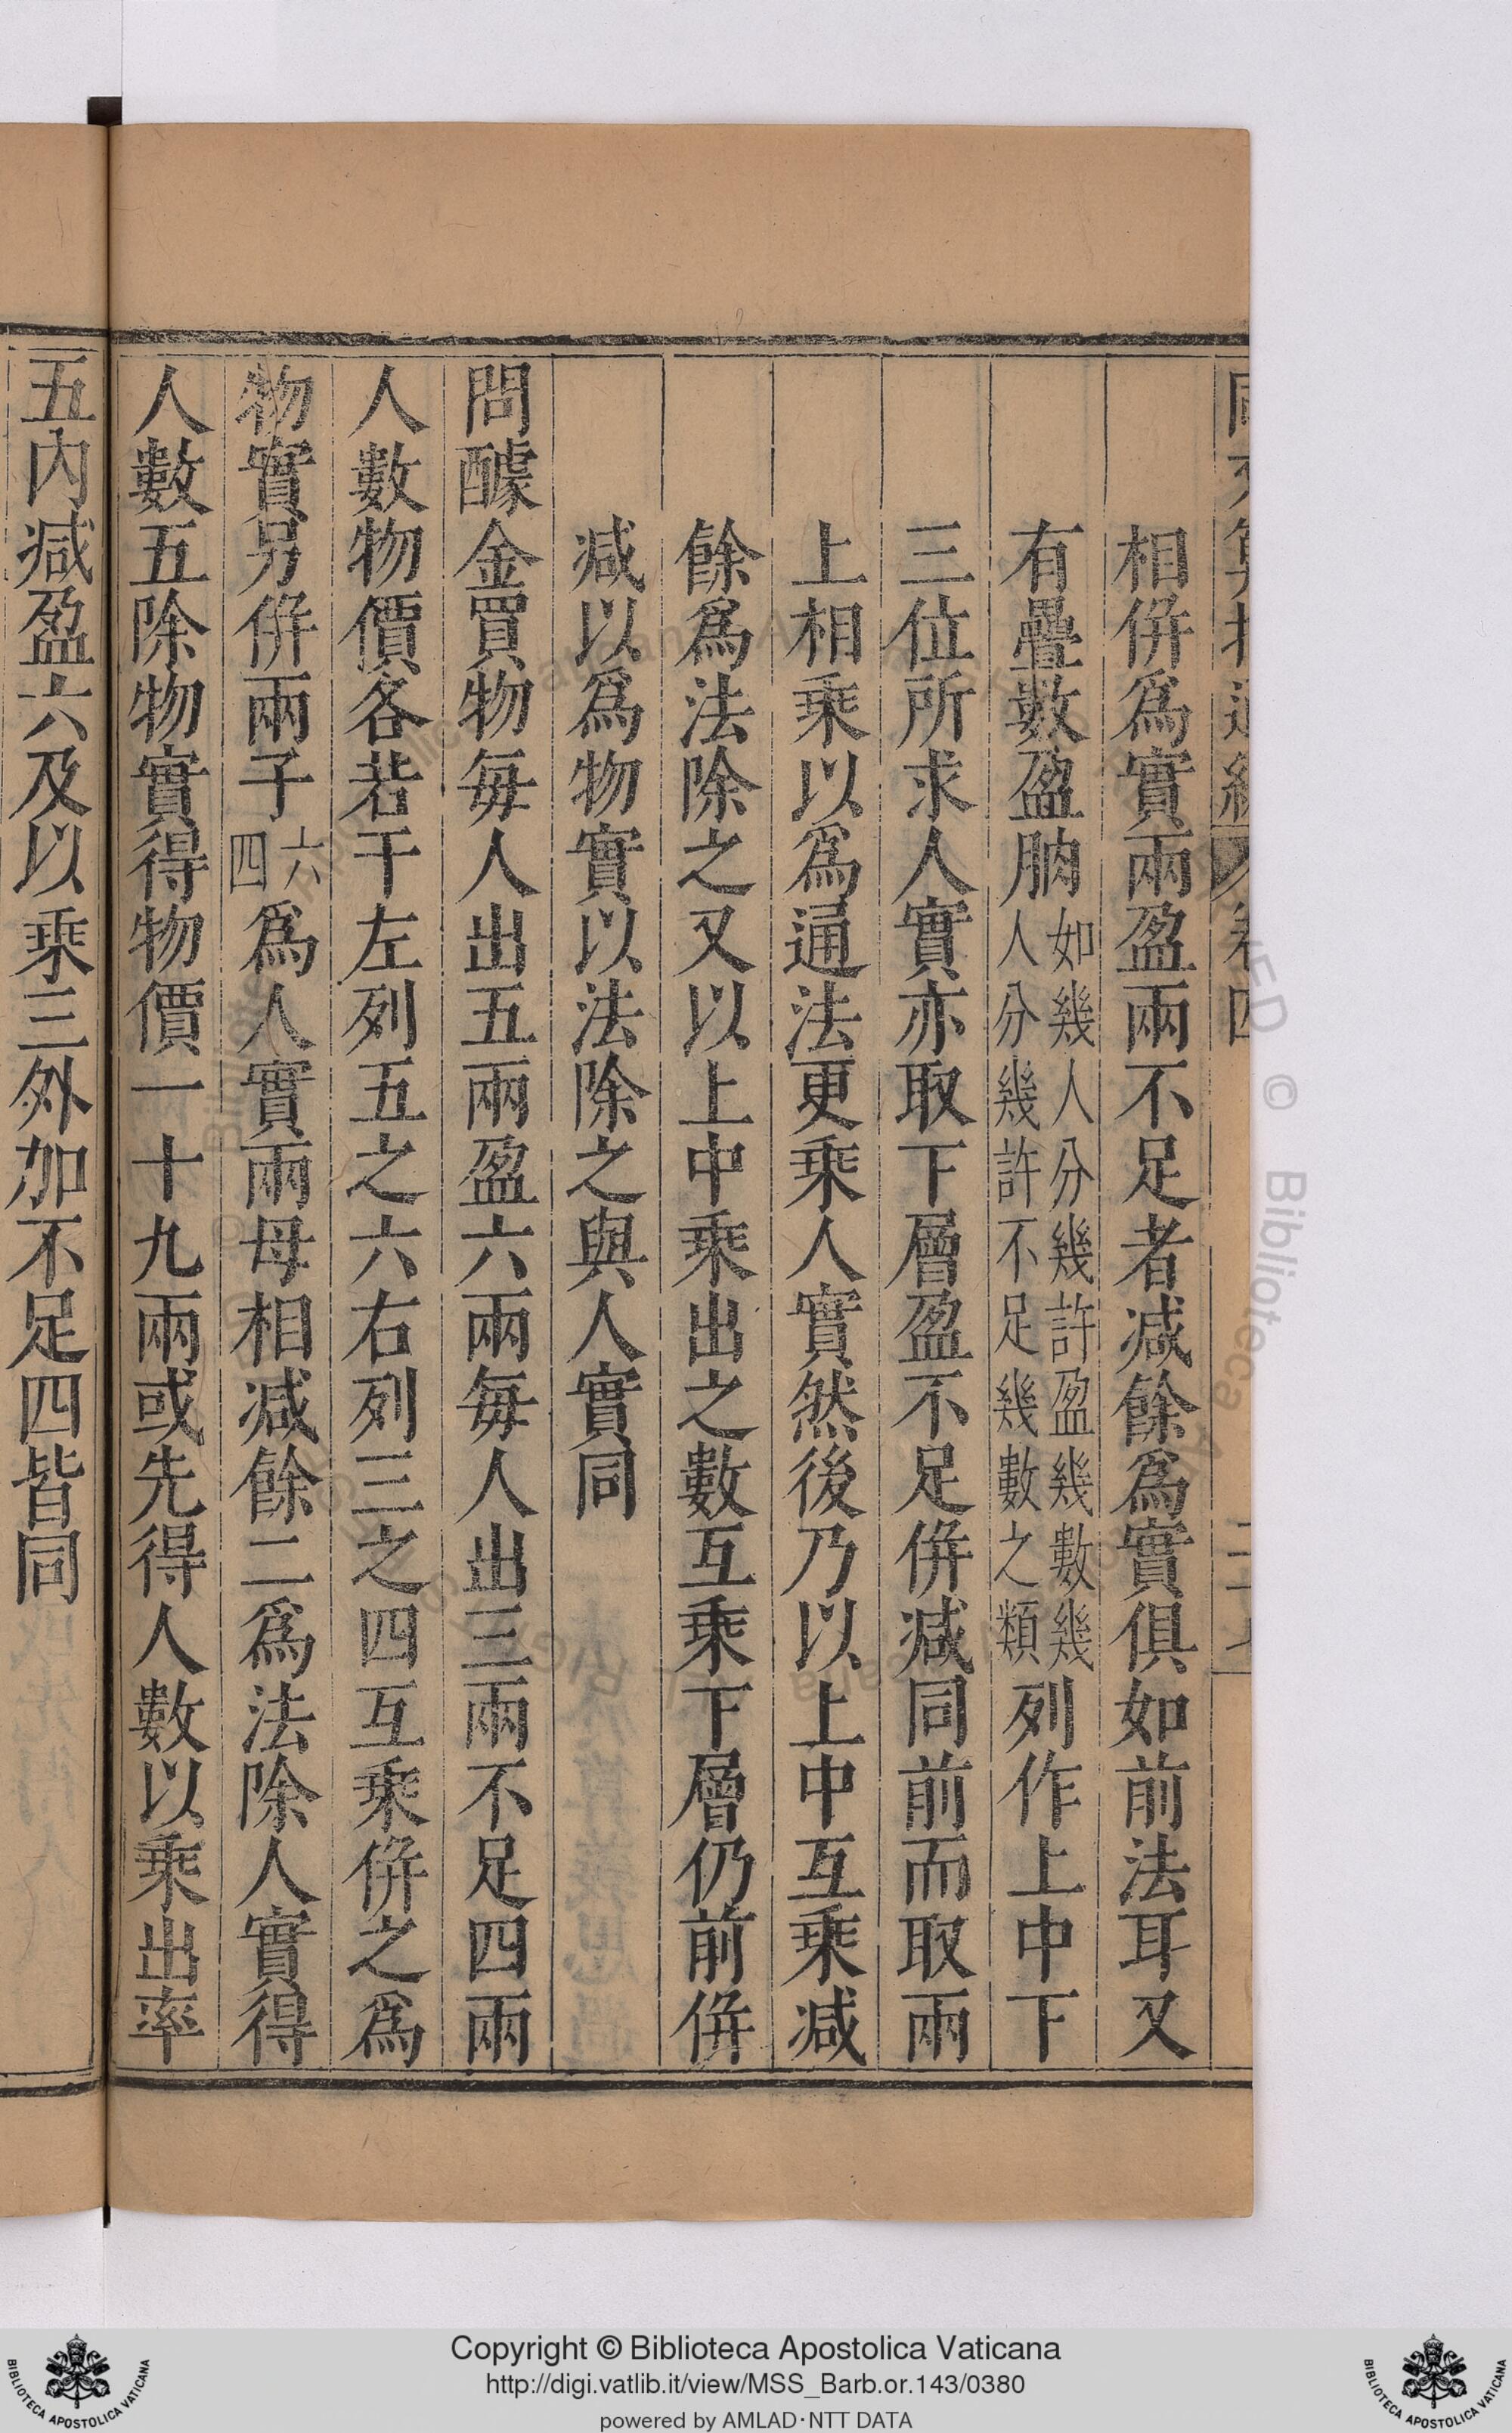 相併爲實兩盈兩不足者减餘爲實俱如前法耳又
有疊數盈朒如幾人分幾許盈幾數幾人分幾許不足幾數之類列作上中下
三位所求人實亦取下層盈不足併减同前而取兩
上相乘以爲通法更乘人實然後乃以上中互乘减
餘爲法除之又以上中乘出之數互乘下層仍前併
减以爲物實以法除之與人實同
問醵金買物每人出五兩盈六兩每人出三兩不足四兩
人數物價各若干左列五之六右列三之四互乘併之爲
物實另併兩子六四爲人實兩母相减餘二爲法除人實得
人數五除物實得物價一十九兩或先得人數以乘出率
五內减盈六及以乘三外加不足四皆同
Copyright © Biblioteca Apostolica Vaticana
http://digi.vatlib.it/view/MSS_Barb.or.143/0380
powered by AMLAD·NTT DATA
BIBLIOTECA APOSTOLICA VATICANA
BIBLIOTECA APOSTOLICA VATICANA